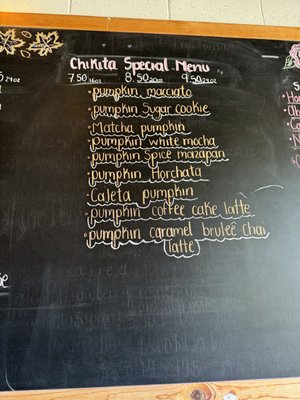 Chikita Special Menu
7.50 16oz 8.50 20oz 9.50 24oz
·pumpkin macciato
·pumpkin Sugar cookie
·Matcha pumpkin
·pumpkin white mocha
·pumpkin Spice mazapan
·pumpkin Horchata
·Cajeta pumpkin
·pumpkin coffee cake latte
·pumpkin caramel bruleé chai
latte